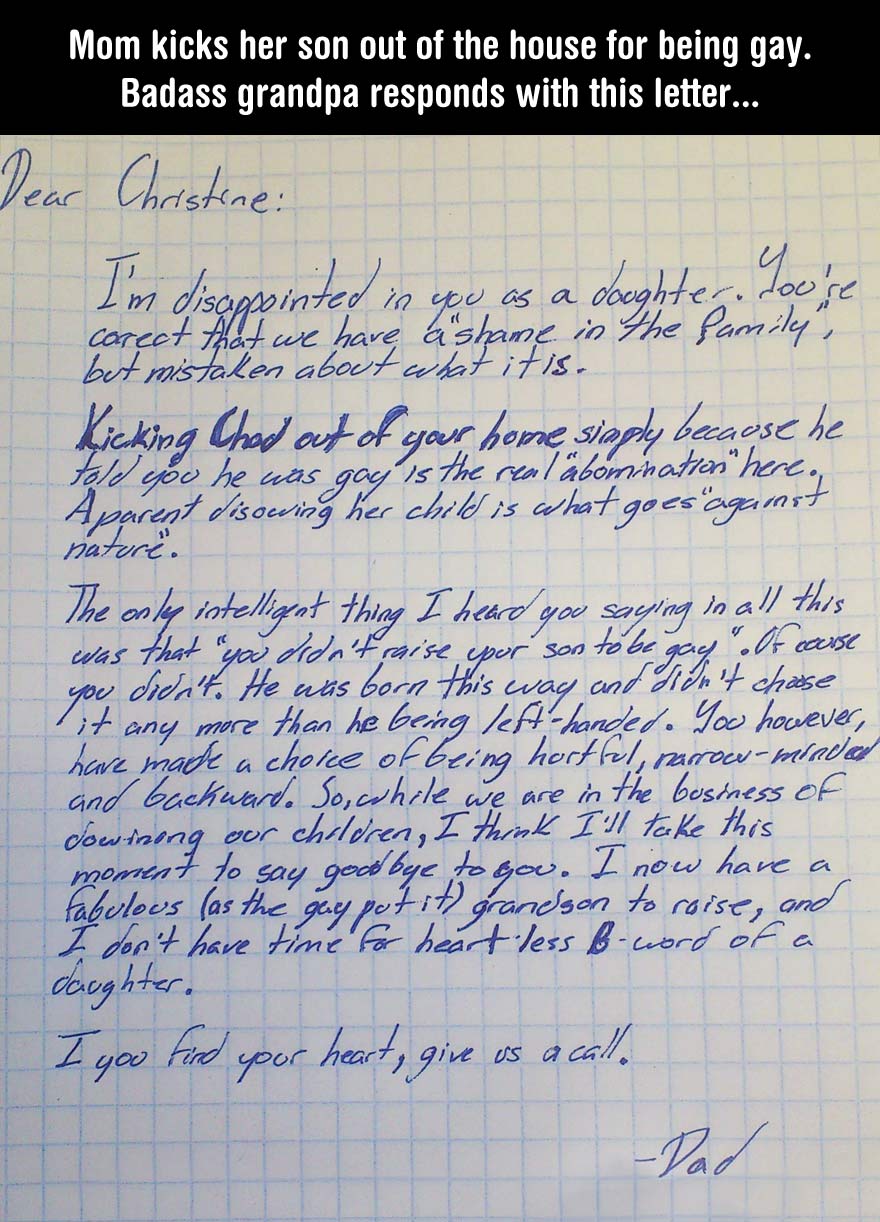 Mom kicks her son out of the house for being gay.
Badass grandpa responds with this letter...
Dear Christine:
I'm disappointed in you as a daughter. You're
corect that we have a "shame in the family",
but mistaken about what it is.
Kicking Chad out of your home simply because he
told you he was gay is the real "abomination" here.
A parent disowing her child is what goes "against
nature".
The only intelligent thing I heard you saying in all this
was that "you didn't raise your son to be gay". Of course
you didn't. He was born this way and didn't choose
it any more than he being left-handed. You however,
have made a choice of being hurtful, narrow-minded
and backward. So, while we are in the business of
disowning our children, I think I'll take this
moment to say goodbye to you. I now have a
fabulous (as the gay put it) grandson to raise, and
I don't have time for heart-less B-word of a
daughter.
I you find your heart, give us a call.
-Dad